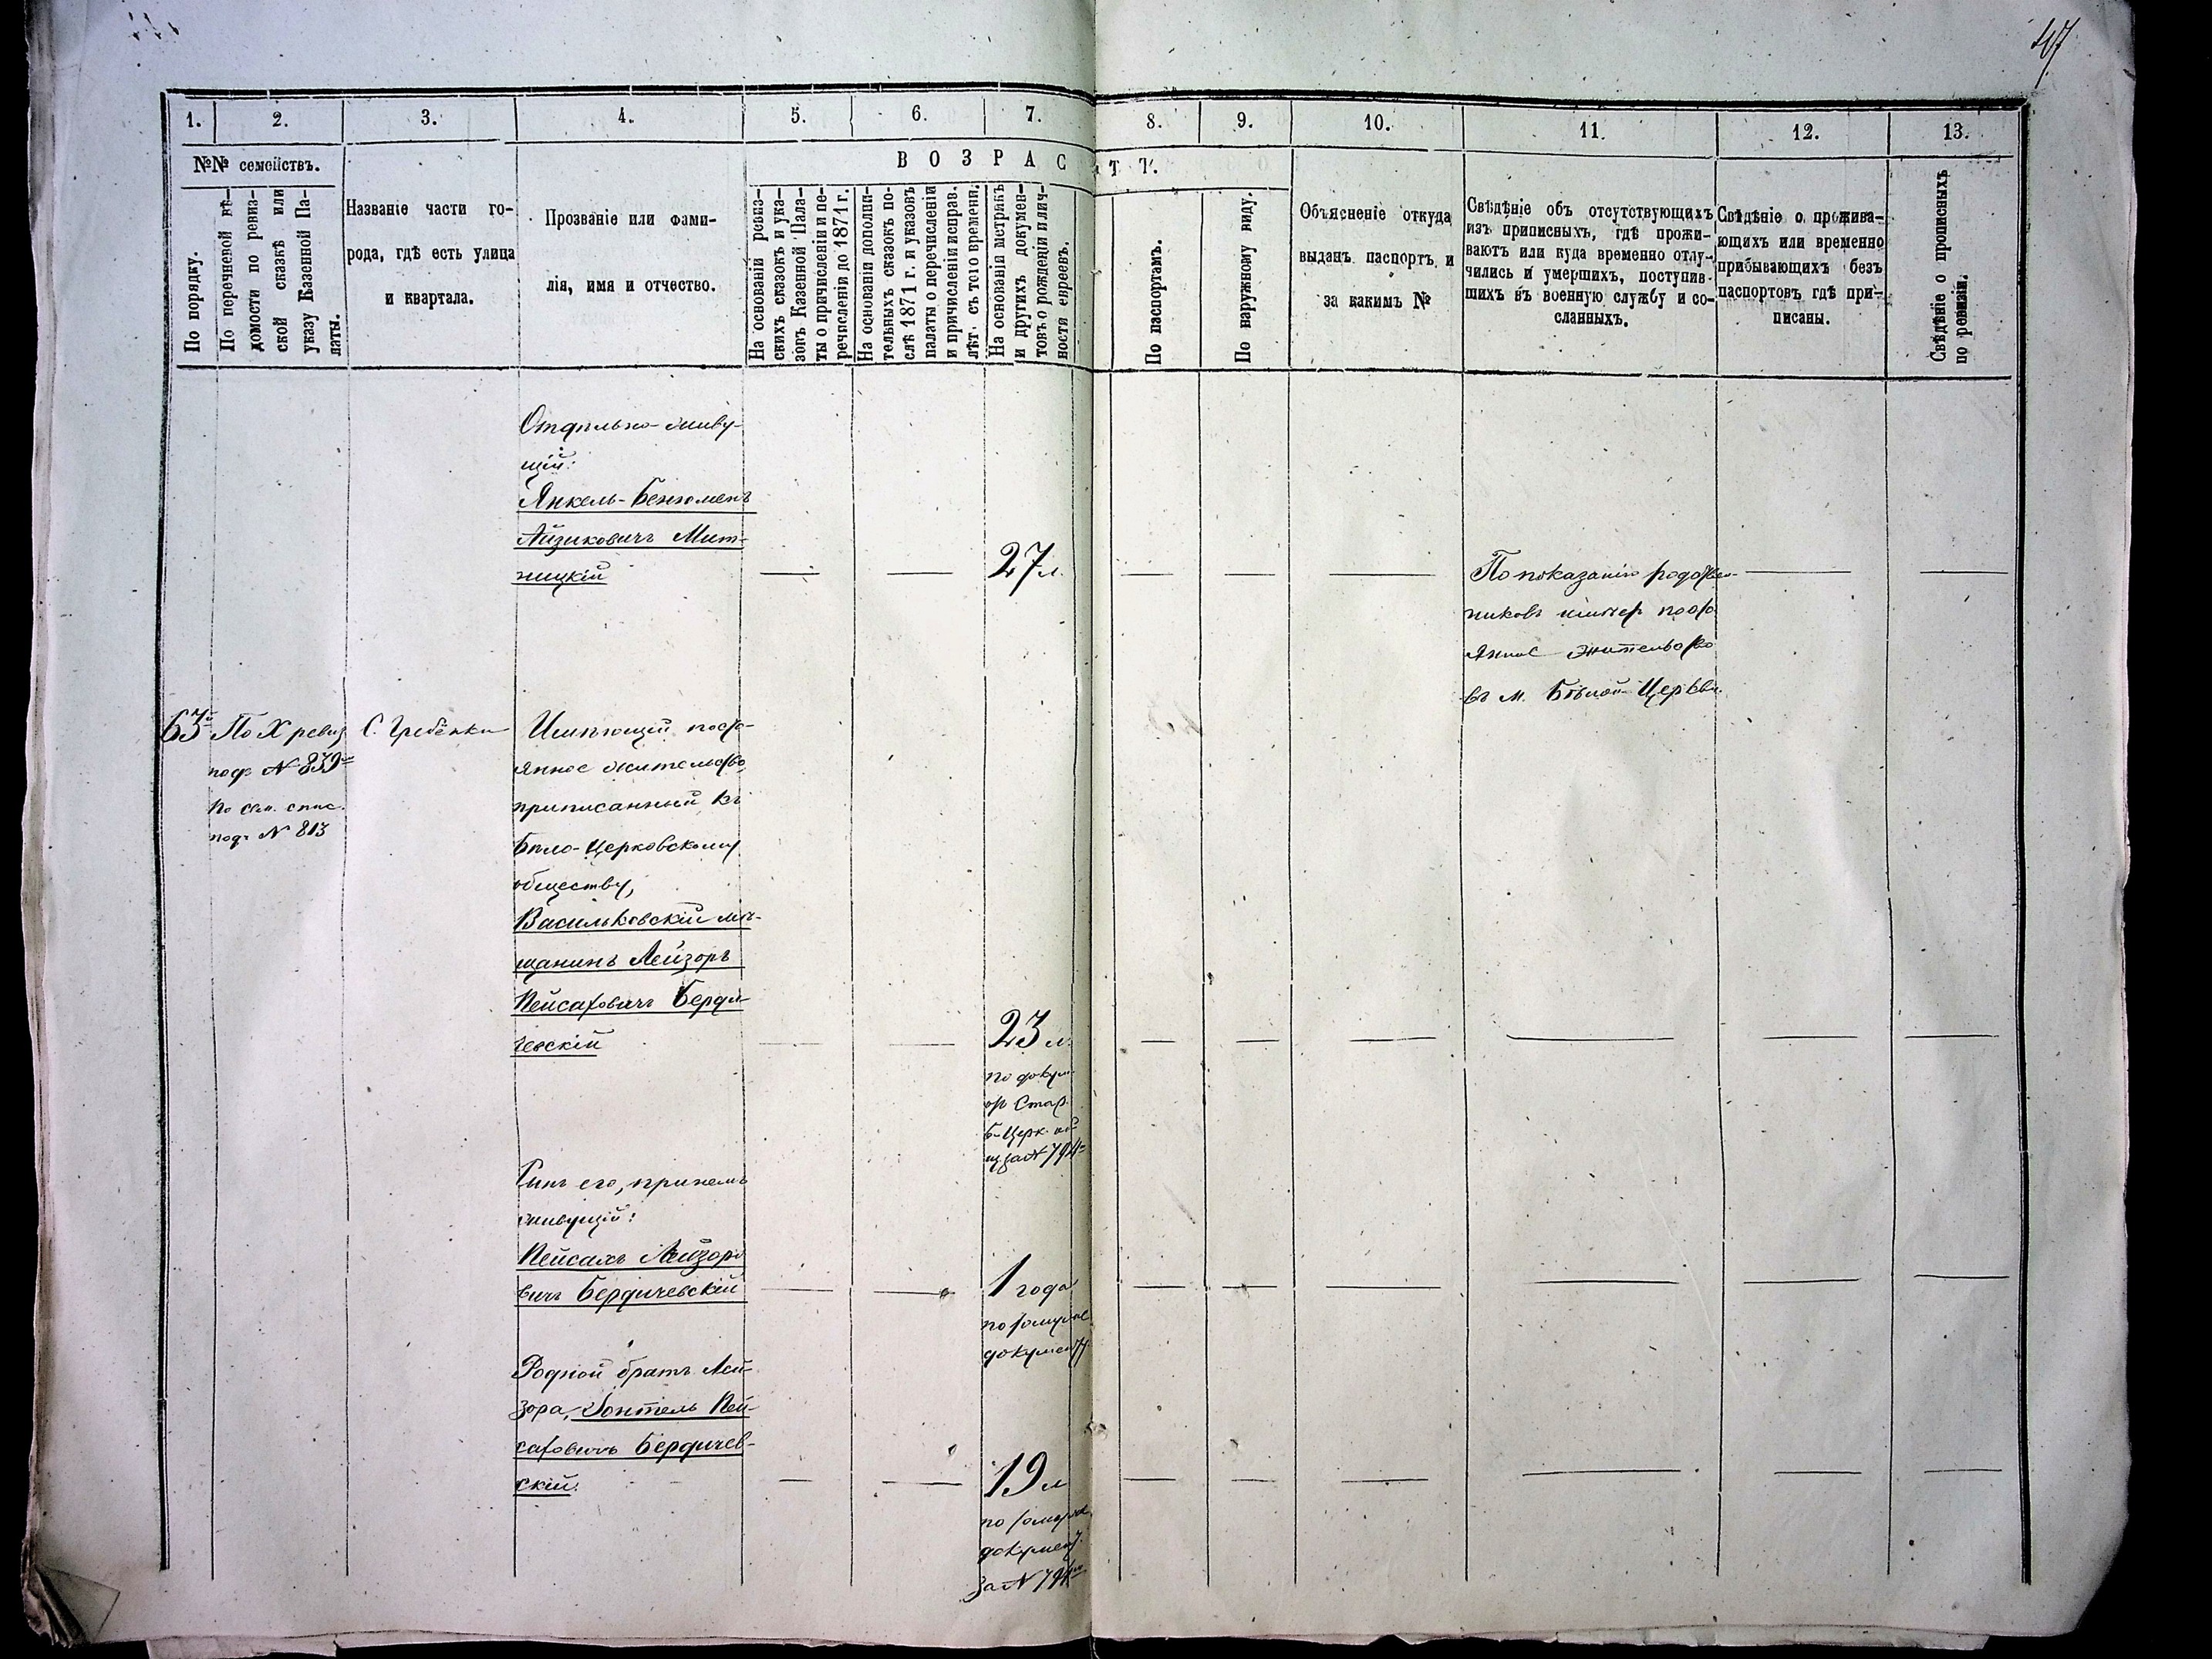 47
1. 2. 3. 4. 5. 6. 7. 8. 9. 10. 11. 12. 13.
№№ семействъ.
ВОЗРАСТЪ.
По порядку.
По перечневой вѣ-
домости по ревиз-
ской сказкѣ или
указу Казенной Па-
латы.
Названіе части го-
рода, гдѣ есть улица
и квартала.
Прозваніе или фами-
лія, имя и отчество.
На основаніи ревиз-
скихъ сказокъ и ука-
зовъ Казенной Пала-
ты о причисленіи и пе-
речисленіи до 1871 г.
На основаніи дополни-
тельныхъ сказокъ по-
слѣ 1871 г. и указовъ
палаты о перечисленіи
и причисленіи исправ.
лѣт. съ того времени.
На основаніи метрикъ
и другихъ докумен-
товъ о рожденіи и лич-
ности евреевъ.
По паспортамъ.
По наружному виду.
Объясненіе откуда
выданъ паспортъ и
за какимъ №
Свѣдѣніе объ отсутствующихъ
изъ приписныхъ, гдѣ прожи-
ваютъ или куда временно отлу-
чились и умершихъ, поступив-
шихъ въ военную службу и со-
сланныхъ.
Свѣдѣніе о прожива-
ющихъ или временно
прибывающихъ безъ
паспортовъ, гдѣ при-
писаны.
Свѣдѣніе о прописныхъ
по ревизіи.
Отдѣльно-живу-
щій:
Янкель-Бенюменъ
Айзиковичъ Мит-
ницкій
27 л.
По показанію родствен-
никовъ имѣетъ посто-
янное жительство
въ м. Бѣлой-Церкви.
63й
По X ревиз
подъ № 839мъ
По сем. спис.
подъ № 813
С. Гребенки
Имѣющій посто-
янное жительство,
приписанный къ
Бѣло-Церковскому
обществу,
Васильковскій мѣ-
щанинъ Лейзоръ
Пейсаховичъ Берди-
чевскій
23 л.
по докум.
отъ Стар.
Б-Церк.
за № 794
Сынъ его, при немъ
живущій:
Пейсахъ Лейзоро
вичъ Бердичевскій
1 года
по
документу
Родной братъ Лей-
зора, Зонтель Пей-
саховичъ Бердичев-
скій.
19 л
по
документ.
за № 794мъ